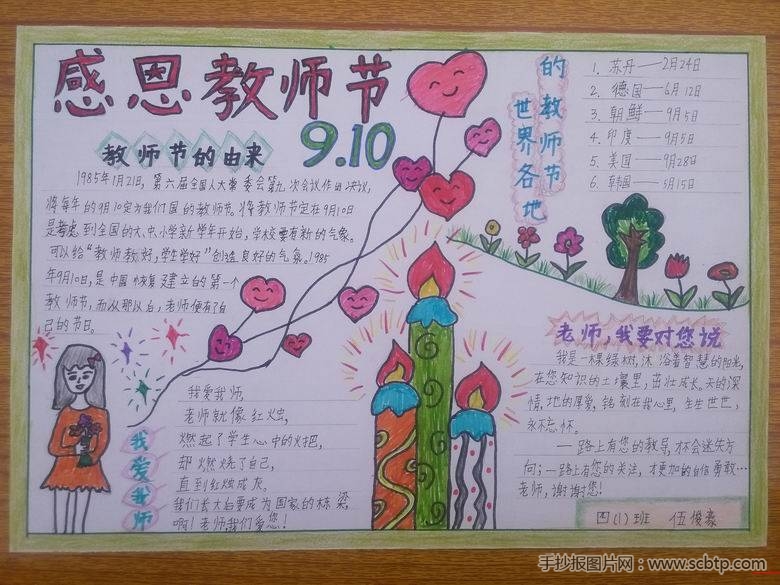 感恩教师节
9.10
教师节的由来
1985年1月21日,第六届全国人大常委会第九次会议作出决议,
将每年的9月10定为我们国的教师节。将教师节定在9月10日
是考虑到全国的大、中、小学金新学年开始,学校要有新的气象。
可以给“教师教好,学生学好”创造良好的气象。1985
年9月10日,是中国恢复建立的第一个
教师节,而从那以后,老师便有了自
己的节日。
世界各地的教师节
1. 苏丹——2月24日
2. 德国——6月12日
3. 朝鲜——9月5日
4. 印度——9月5日
5. 美国——9月28日
6. 韩国——5月15日
我爱我师
我爱我师,
老师就像红烛,
燃起了学生心中的火把,
却燃烧了自己,
直到红烛成灰,
我们长大后要成为国家的栋梁,
啊!老师,我们爱您!
老师,我要对您说
我是一棵绿树,沐浴着智慧的阳光,
在您知识的土壤里,茁壮成长。天的深
情,地的厚爱,铭刻在我心里,生生世世,
永不忘怀。
一路上有您的教导,才不会迷失方
向;一路上有您的关注,才更加的自信勇敢…
老师,谢谢您!
四(1)班 伍俊豪
手抄报图片网:www.scbtp.com